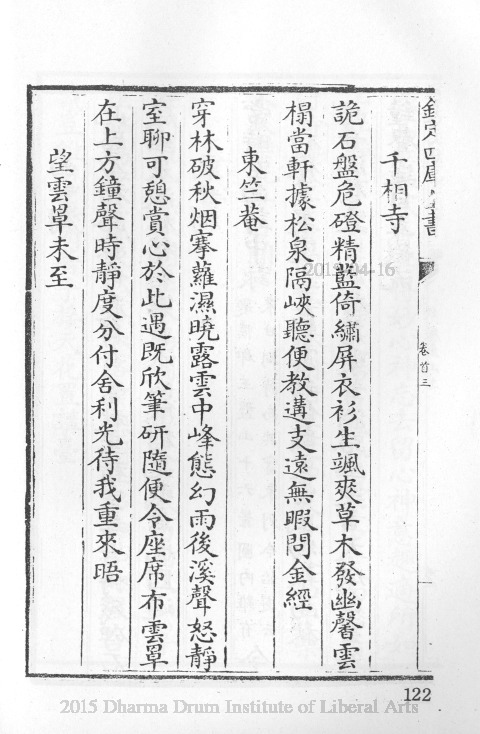 欽定四庫全書
卷首三
千相寺
詭石盤危磴精藍倚繡屏衣衫生颯爽草木發幽馨雲
榻當軒據松泉隔峽聽便教遘支遠無暇問金經
東竺菴
穿林破秋烟搴蘿濕曉露雲中峰態幻雨後溪聲怒靜
室聊可憩賞心於此遇既欣筆研隨便令座席布雲罩
在上方鐘聲時靜度分付舍利光待我重來晤
望雲罩未至
122
2015 Dharma Drum Institute of Liberal Arts